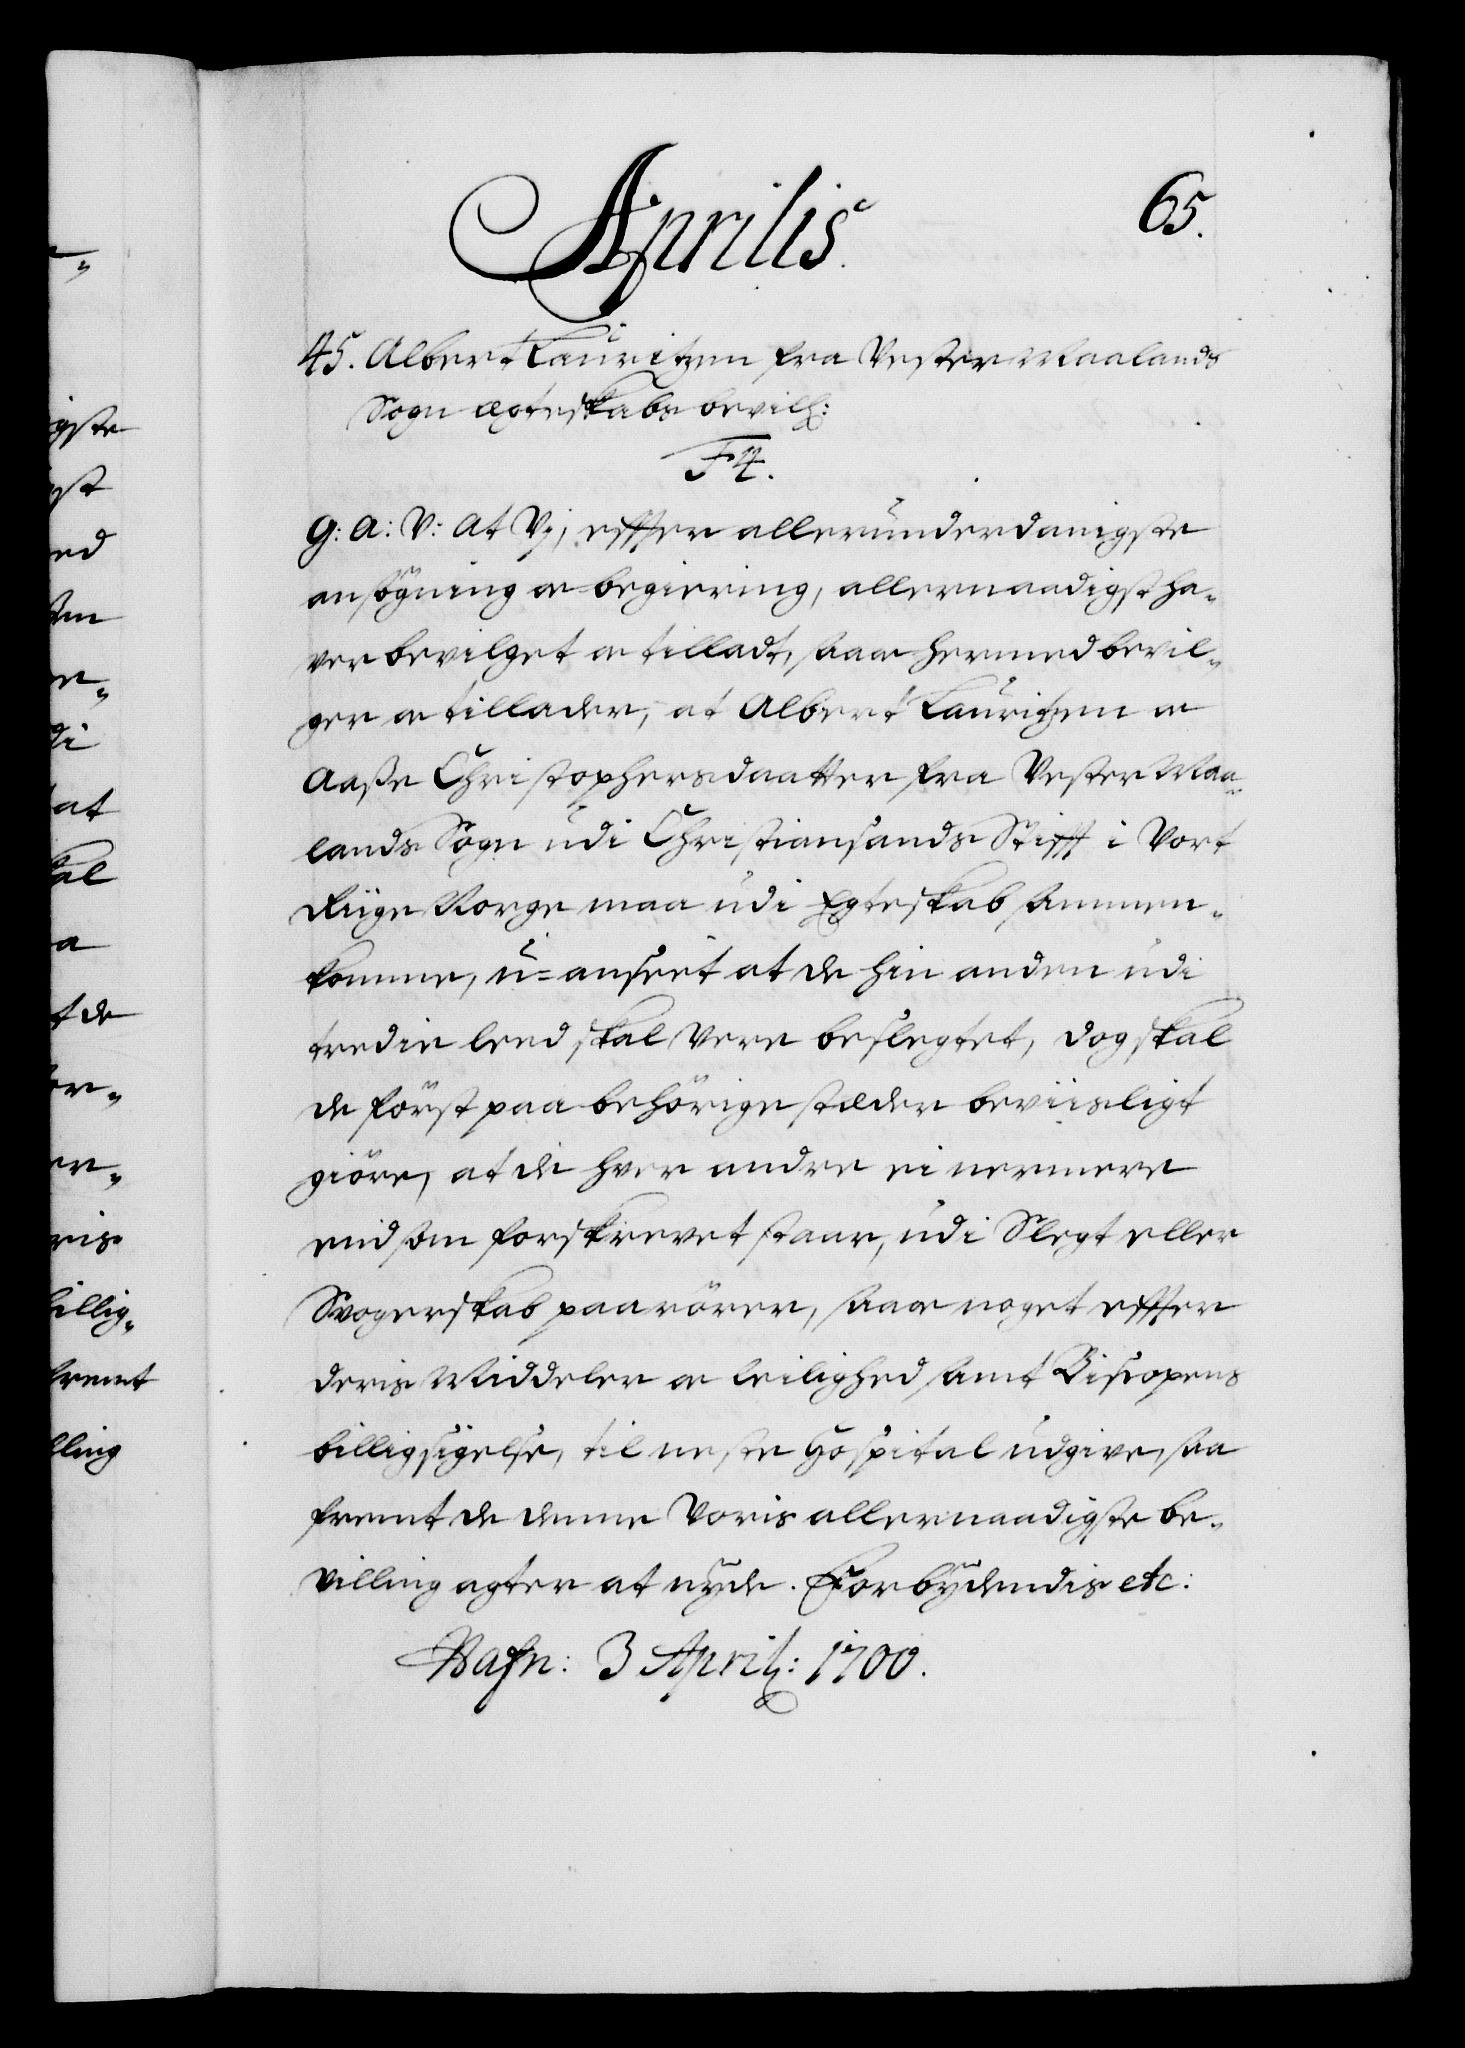 Aprilis.
65.
45. Albert Lauritzen fra Vester Maalands
Sogn ægteskabs bevill:
F4.
G: A: V: At Vj, effter allerunderdanigste
ansögning oc begiering, allernaadigst ha-
ver bevilget oc tilladt, saa oc hermed bevil-
ger oc tillader, at Albert Lauritzen oc
Aaße Christophersdaatter fra Vester Maa-
lands Sogn udi Christiansands Stifft i Vort
Riige Norge maa udi Egteskab sammen-
komme, u=anseet at de hin anden udi
tredie leed skal vere beslegtet, dog skal
de först paa behörige stæder beviisligt
giöre, at de hver andre ei nermere
end som forskrevet staar, udi Slegt eller
Svogerskab paarörer, saa oc noget effter
deris Middeler oc leilighed samt Biscopens
billigsigelse, til neste Hospital udgive, saa
fremt de denne Voris allernaadigste be-
villing agter at nyde. Forbydendis etc:
Hafn: 3 April: 1700.
igste
gst
ed
di
at
kal
a
t de
or-
er-
ris
billig-
fremt
lling